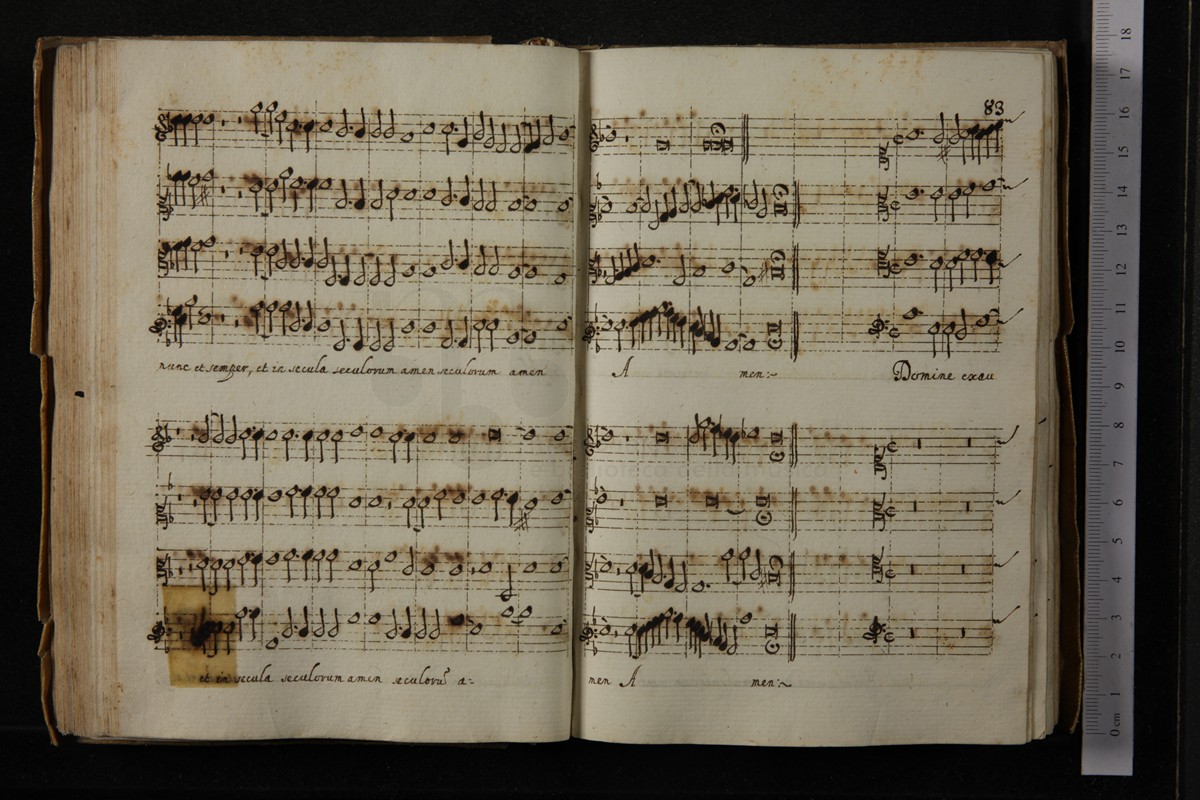 83
nunc et semper, et in secula seculorum amen seculorum amen
A men:~
Domine exau
et in secula seculorum amen seculorū a:
men A men:~
18
17
16
15
14
13
12
11
10
9
8
7
6
5
4
3
2
1
0 cm